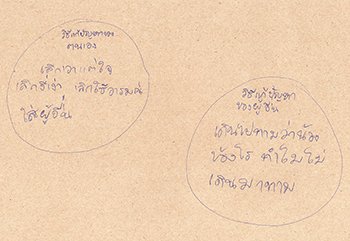 วิธีแก้ปัญหาของ
ตนเอง
เลิกเอาแต่ใจ
เลิกขี้เง่า เลิกใช้อารมณ์
ใส่ผู้อื่น
วิธีแก้ปัญหา
ของผู้อื่น
เดินไปถามว่าน้อง
ร้องไห้ ทำไมไม่
เดินมาถาม